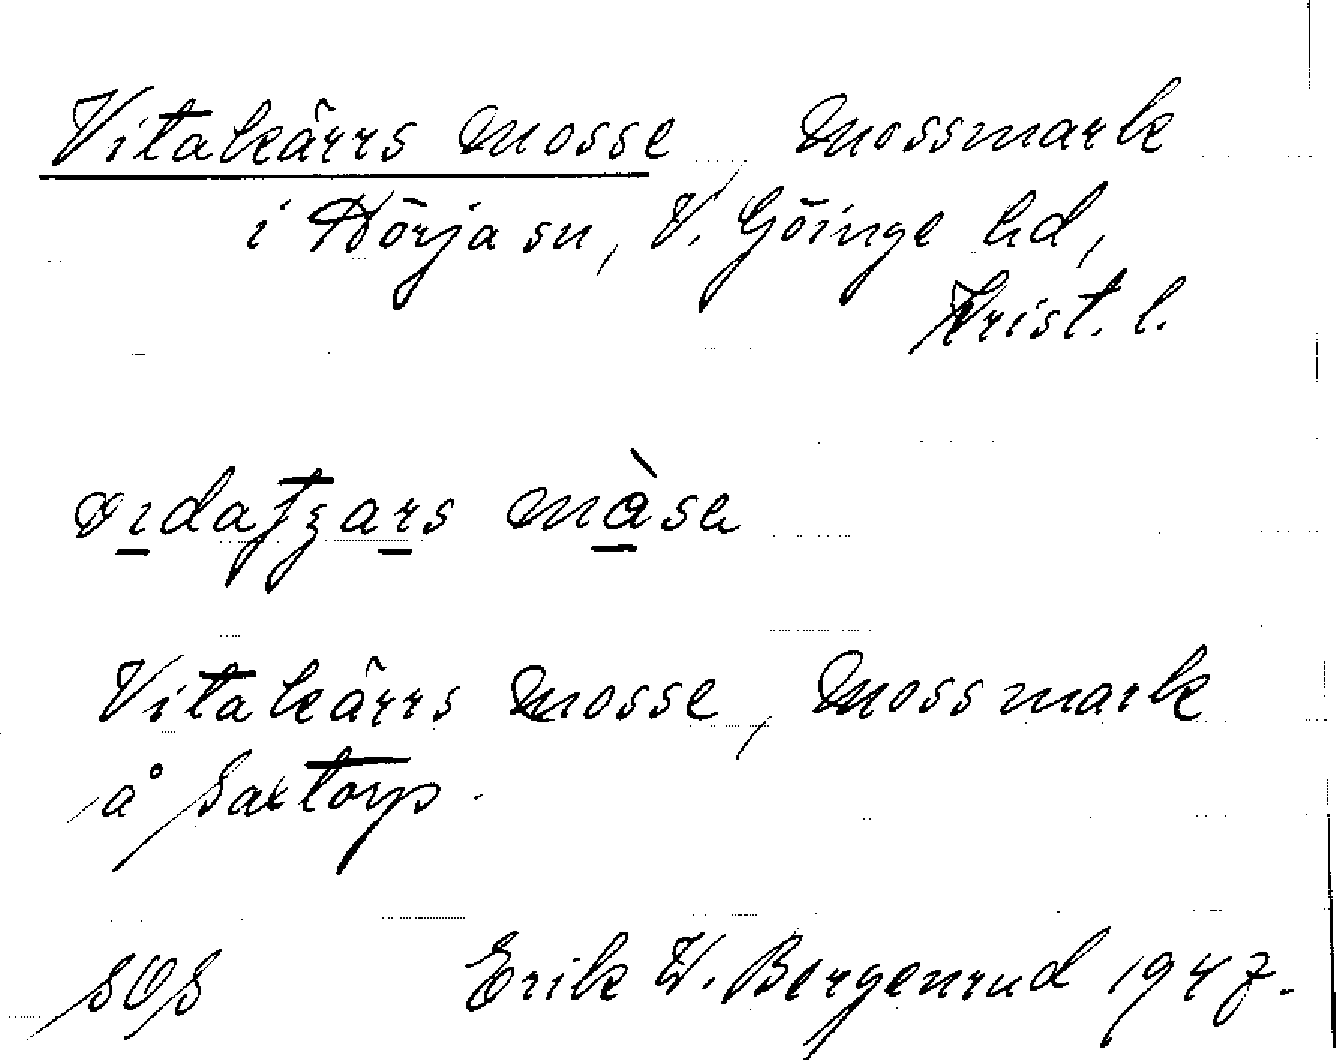 Vitakärrs mosse, Mossmark
i Nörja sn, V. Göinge hd,
Krist. l.
màsa
Vitakärrs mosse, Mossmark
å Saxtorp.
SOS Erik W. Bergenrud 1947.